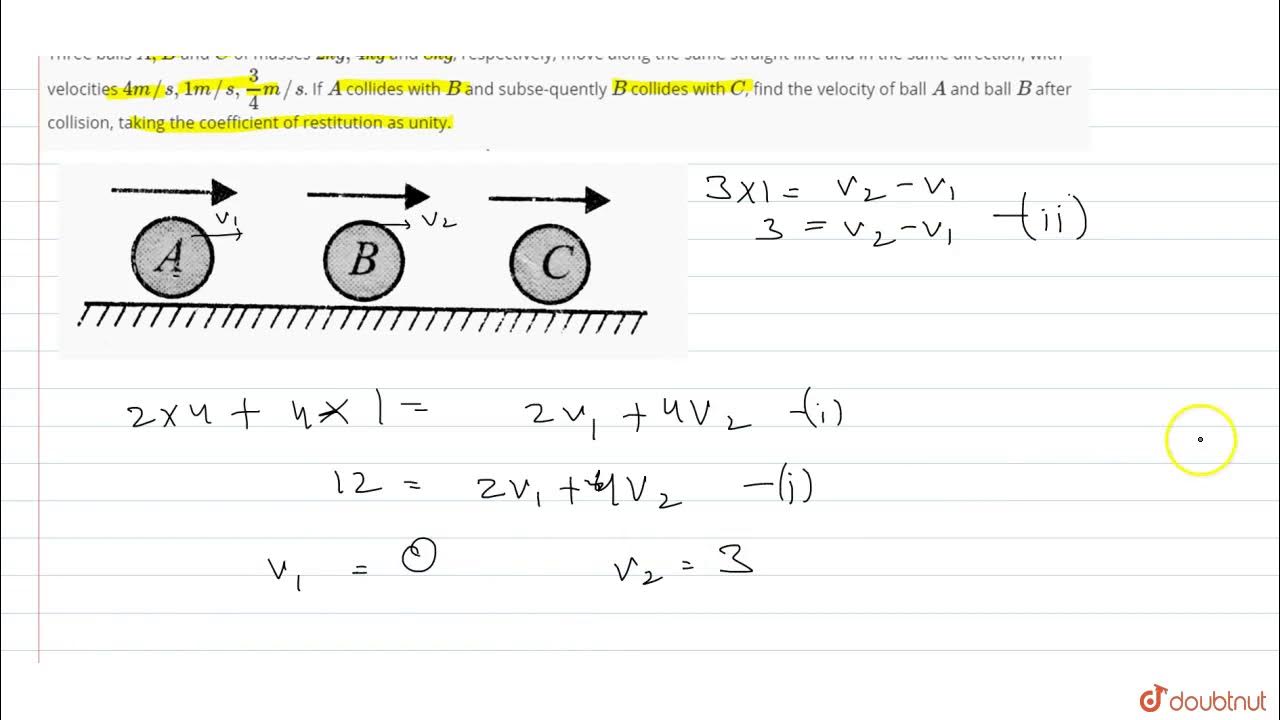 Three balls A, B and C of masses 2kg, 4kg and 8kg, respectively, move along the same straight line and in the same direction, with
velocities 4m/s, 1m/s, 3/4 m/s. If A collides with B and subse-quently B collides with C, find the velocity of ball A and ball B after
collision, taking the coefficient of restitution as unity.
3×1 = v₂ - v₁
3 = v₂ - v₁ -(ii)
v₁
v₂
A
B
C
2×4 + 4×1 = 2v₁ + 4v₂ -(i)
12 = 2v₁ + 4v₂ -(i)
v₁ = 0 v₂ = 3
doubtnut